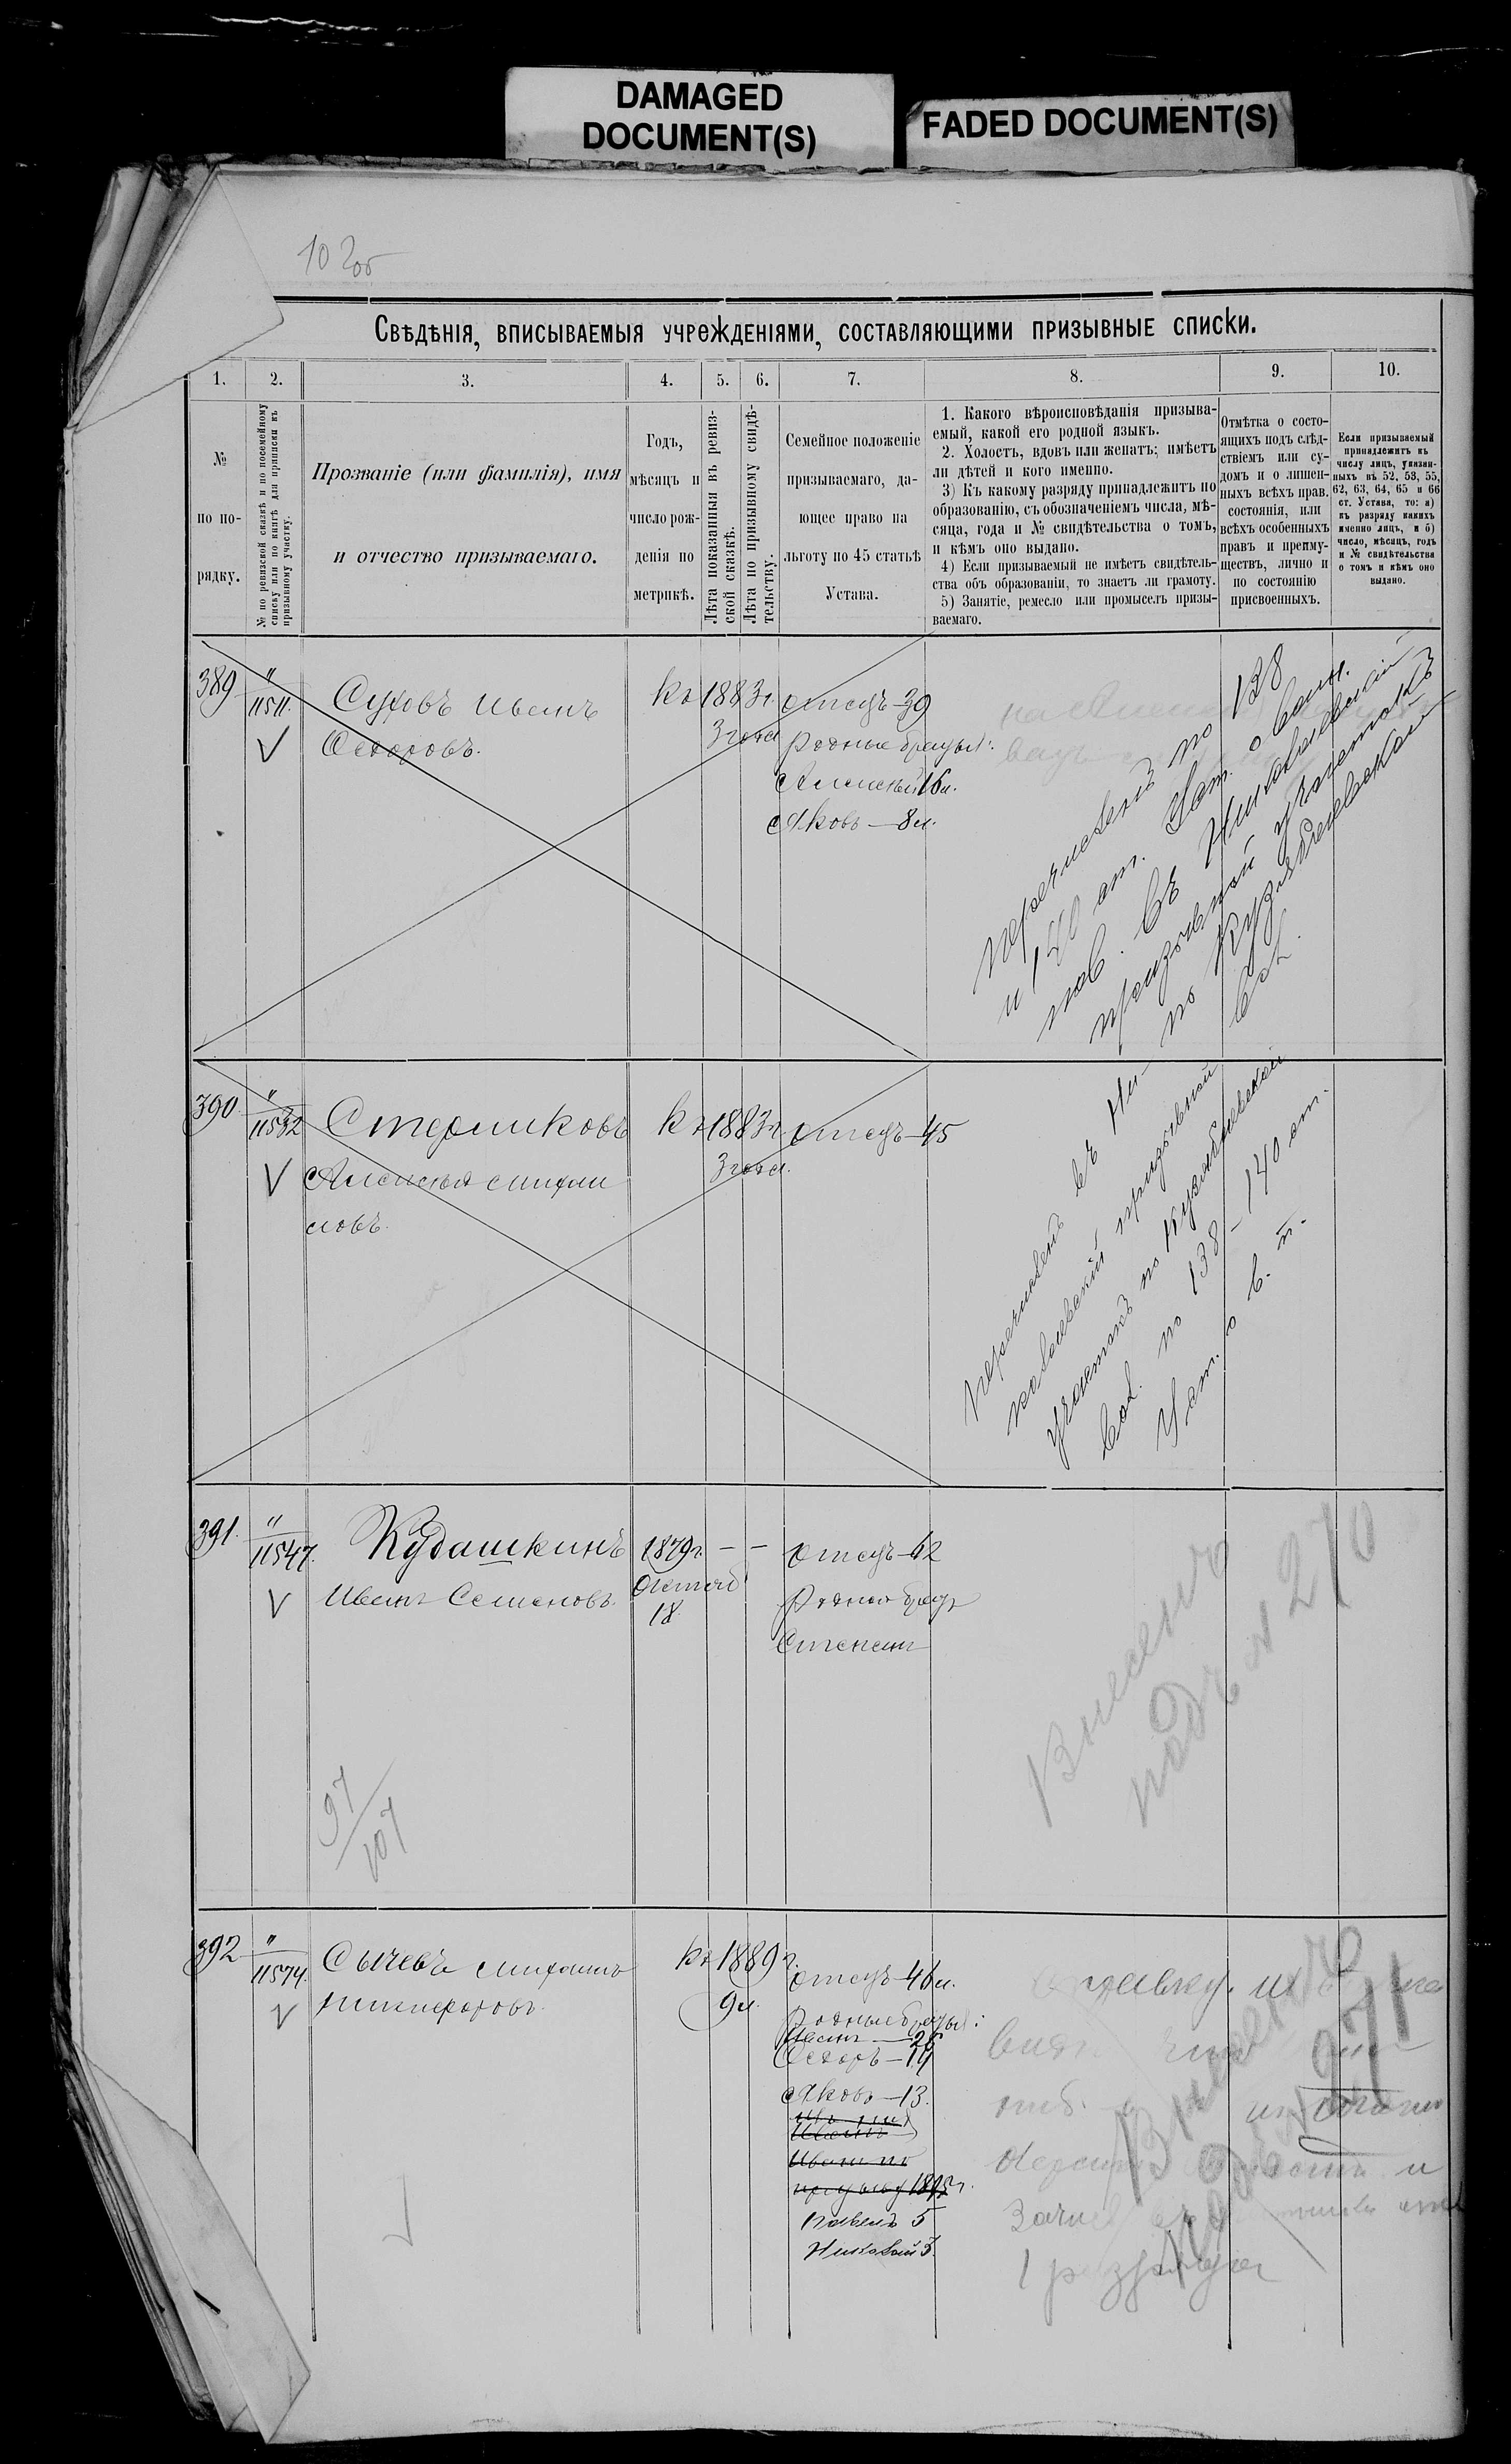 DAMAGED
DOCUMENT(S)
FADED DOCUMENT(S)
102об
Свѣдѣнія, вписываемыя учрежденіями, составляющими призывные списки.
1. 2. 3. 4. 5. 6. 7. 8. 9. 10.
№
по по-
рядку.
№ по ревизской сказкѣ и по посемейному
списку или по книгѣ для приписки къ
призывному участку.
Прозваніе (или фамилія), имя
и отчество призываемаго.
Годъ,
мѣсяцъ и
число рож-
денія по
метрикѣ.
Лѣта показанныя въ ревиз-
ской сказкѣ.
Лѣта по призывному свидѣ-
тельству.
Семейное положеніе
призываемаго, да-
ющее право на
льготу по 45 статьѣ
Устава.
1. Какого вѣроисповѣданія призыва-
емый, какой его родной языкъ.
2. Холостъ, вдовъ или женатъ; имѣетъ
ли дѣтей и кого именно.
3) Къ какому разряду принадлежитъ по
образованію, съ обозначеніемъ числа, мѣ-
сяца, года и № свидѣтельства о томъ,
и кѣмъ оно выдано.
4) Если призываемый не имѣетъ свидѣтель-
ства объ образованіи, то знаетъ ли грамоту.
5) Занятіе, ремесло или промыселъ призы-
ваемаго.
Отмѣтка о состо-
ящихъ подъ слѣд-
ствіемъ или су-
домъ и о лишен-
ныхъ всѣхъ прав.
состоянія, или
всѣхъ особенныхъ
правъ и преиму-
ществъ, лично и
по состоянію
присвоенныхъ.
Если призываемый
принадлежитъ къ
числу лицъ, указан-
ныхъ въ 52, 53, 55,
62, 63, 64, 65 и 66
ст. Устава, то: а)
къ разряду какихъ
именно лицъ, и б)
число, мѣсяцъ, годъ
и № свидѣтельства
о томъ и кѣмъ оно
выдано.
389 " Суховъ Иванъ Къ 1883г. отецъ—39
11511. Ѳедоровъ. 3 года родные братья:
Алексѣй 16л.
Яковъ—8л.
перечисленъ по 138
и 140 ст. Уст. о воин.
пов. въ Николаевскій
призывной участокъ
по Кузябаевской
вол.
390 " Стариковъ Къ 1883г. отецъ—45
11532 Алексѣй Михаи 3 года.
ловъ.
перечисленъ въ Ни-
колаевскій призывной
участокъ по Кузябаевской
вол. по 138—140 ст.
Уст. о в. п.
391. " Кудашкинъ 1879г. — — отецъ—42
11547. Иванъ Семеновъ. Октяб родной братъ
18 Степанъ
Внесенъ
подъ № 270
97
107
392 " Сычевъ Михаилъ Къ 1889г. отецъ—46л.
11574. Никифоровъ. 9л. родные братья:
Иванъ—26
Ѳедоръ—19
Яковъ—13.
Иванъ по
призыву 1895г.
Павелъ 5
Николай 3.
Внесенъ
подъ № 271
1 разряда